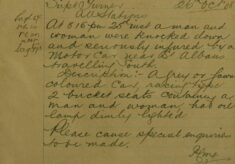 Supt Turner 26 Oct 05
At 8.15 pm 25 inst a man and
woman were knocked down
and seriously injured by a
Motor Car near St Albans
travelling South
Description:- A grey or fawn
coloured Car, racing type
2 bucket seats containing a
man and woman, has one
lamp dimly lighted
Please cause special enquiries
to be made.